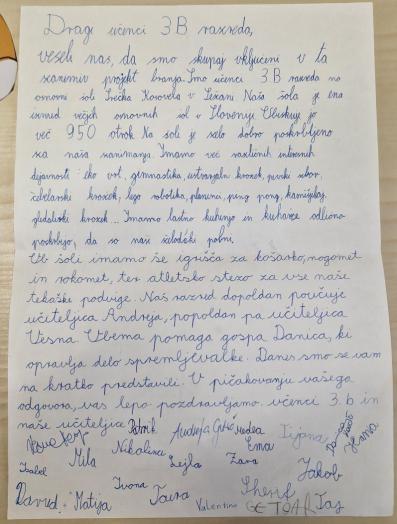 Dragi učenci 3B razreda,
veseli nas, da smo skupaj vključeni v ta
zanimiv projekt branja. Smo učenci 3B razreda na
osnovni šoli Srečka Kosovela v Sežani. Naša šola je ena
izmed večjih osnovnih šol v Sloveniji. Obiskuje jo
več 950 otrok. Na šoli je zelo dobro poskrbljeno
za naša zanimanja. Imamo več različnih interesnih
dejavnosti: eko vrt, gimnastika, ustvarjalni krožek, pevski zbor,
čebelarski krožek, lego robotika, planinci, ping pong,
gledališki krožek... Imamo lastno kuhinjo in kuharice odlično
poskrbijo, da so naši želodčki polni.
Ob šoli imamo še igrišča za košarko, nogomet
in rokomet, ter atletsko stezo za vse naše
tekaške podvige. Naš razred dopoldan poučuje
učiteljica Andreja, popoldan pa učiteljica
Vesna. Urbema pomaga gospa Danica, ki
opravlja delo spremljevalke. Danes smo se vam
na kratko predstavili. V pičakovanju vašega
odgovora, vas lepo pozdravljamo učenci 3.b in
naše učiteljice
Patrik Andreja Medea Tijana
Izabel Mila Nikolina Lejla Ema Zara Jakob
David Matija Ivona Taira Valentino Sherif GETOAR Taj